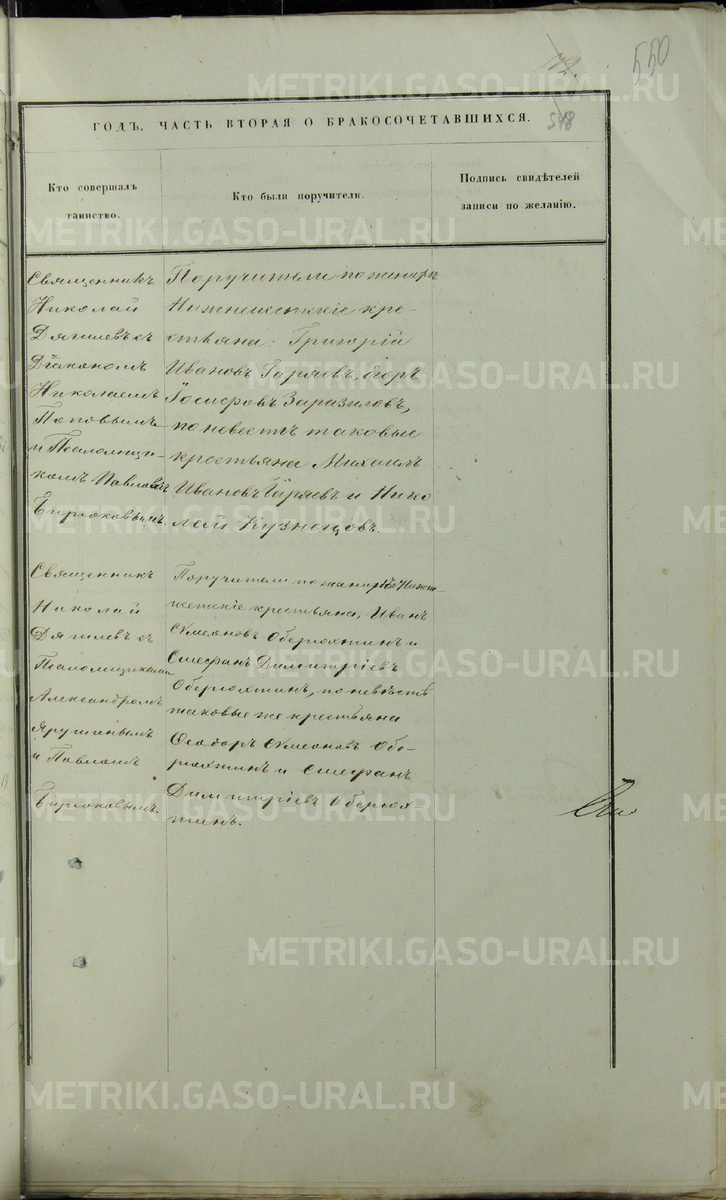 550
ГОДЪ. ЧАСТЬ ВТОРАЯ О БРАКОСОЧЕТАВШИХСЯ.
548
Кто совершалъ
таинство.
Кто были поручители.
Подпись свидѣтелей
записи по желанію.
Священникъ
Николай
Дягилевъ съ
Діакономъ
Николаемъ
Поповымъ
и Псаломщи-
комъ Павломъ
Бирюковымъ.
Поручители по женихѣ
кре-
стьяна: Григорій
Ивановъ Гаряевъ, Егоръ
Іосифовъ
по невестѣ таковые
крестьяна Михаилъ
Ивановъ Гаряевъ и Нико
лай Кузнецовъ.
Священникъ
Николай
Дягилевъ съ
Псаломщиками
Александромъ
Ярушинымъ
и Павломъ
Бирюковымъ.
Поручители по женихѣ Нижне-
крестьяна, Иванъ
Сѵмеоновъ Оберюхтинъ и
Стефанъ Димитріевъ
Оберюхтинъ, по невѣстѣ
таковые же крестьяна
Ѳеодоръ Сѵмеоновъ Обе-
рюхтинъ и Стефанъ
Димитріевъ Оберюх
тинъ.
METRIKI.GASO-URAL.RU